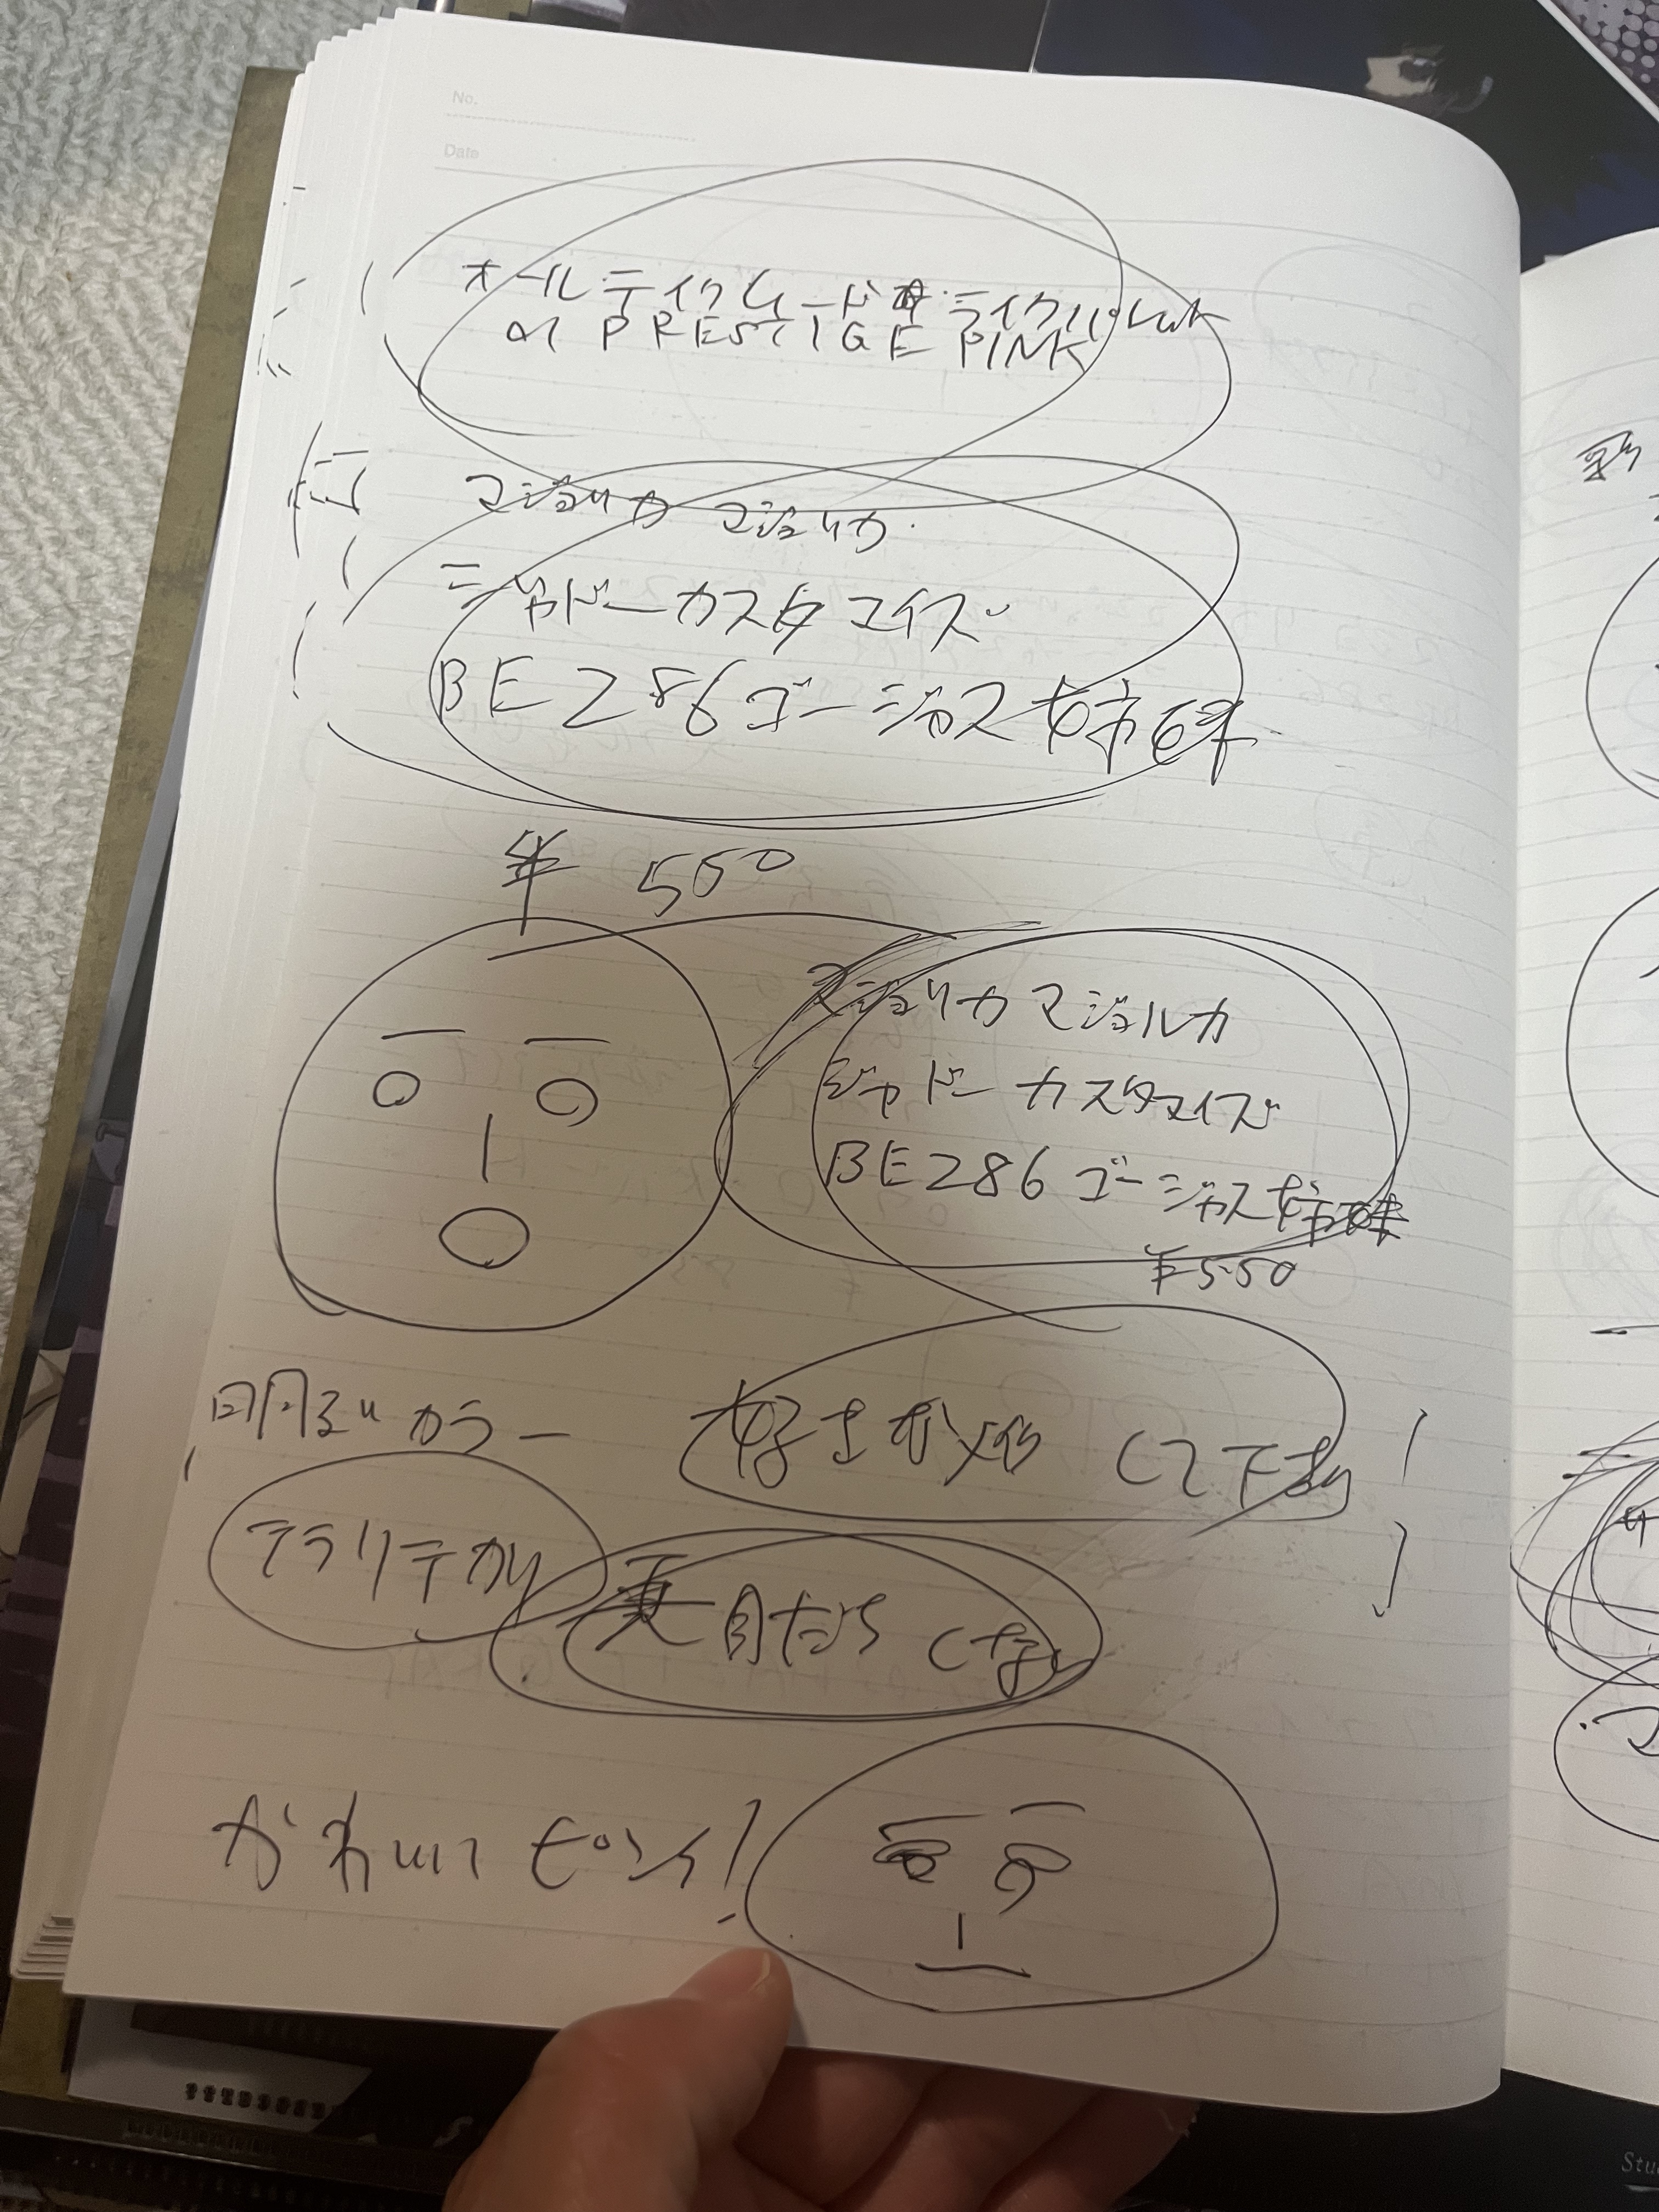 No.
Date
オールテイクムードライクパレット
01 PRESTIGE PINK
マジョリカ マジョリカ
シャドーカスタマイズ
BE286ゴージャス姉妹
¥ 550
マジョリカマジョルカ
シャドーカスタマイズ
BE286ゴージャス姉妹
¥550
明るいカラー
好きな
して下さい
テラリテカリ
かわいいピンク!